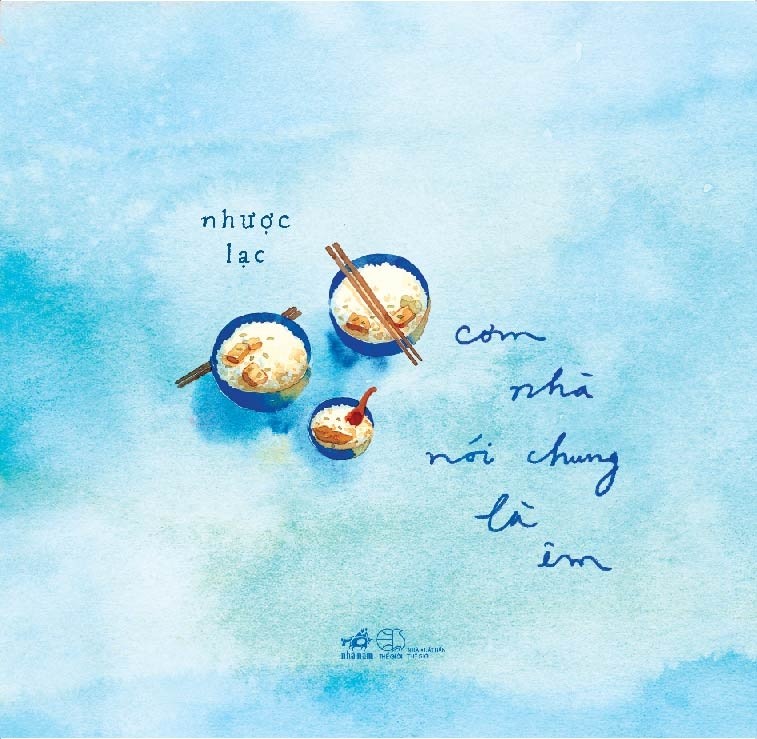 nhược
lạc
cơm
nhà
nói chung
là
êm
nhã nam
THẾ GIỚI
NHÀ XUẤT BẢN
THẾ GIỚI